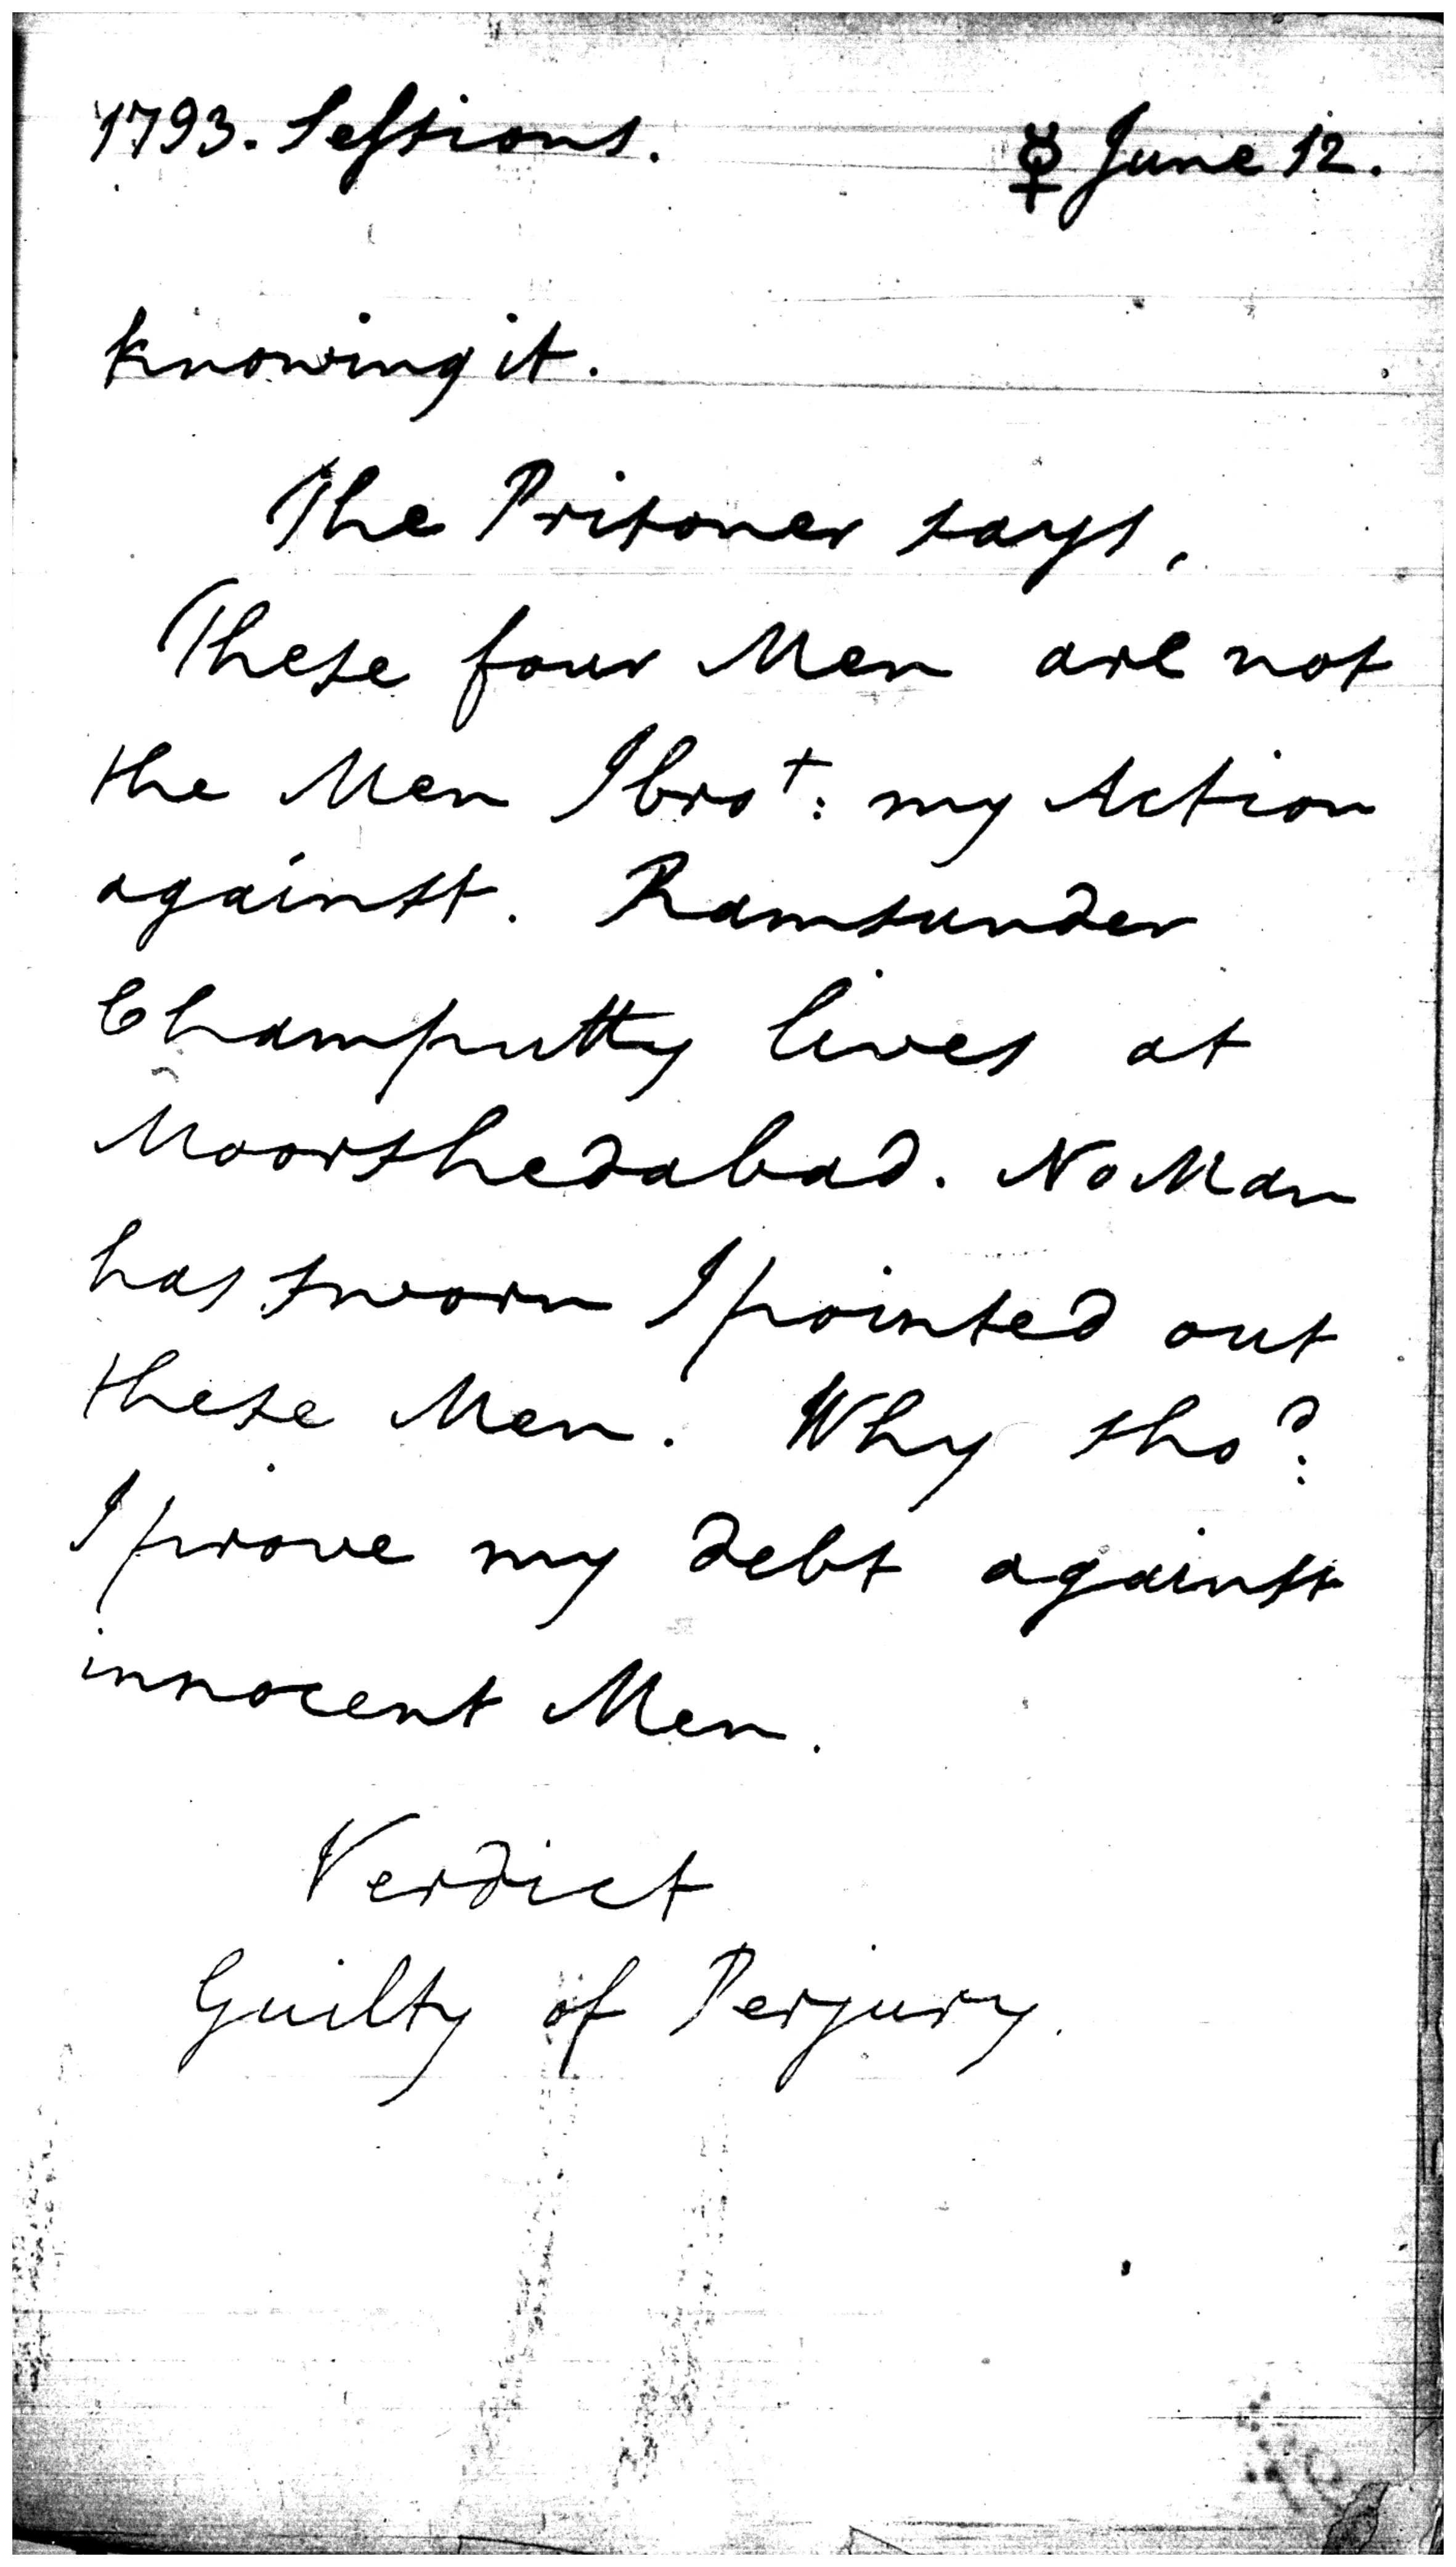 1793. Sessions. ☿ June 12.
knowing it.
The Prisoner says,
These four Men are not
the Men I bro^t: my Action
against. Ramsunder
Champutty lives at
Moorshedabad. No Man
has sworn I pointed out
these Men. Why sho^d:
I prove my debt against
innocent Men.
Verdict
Guilty of Perjury.